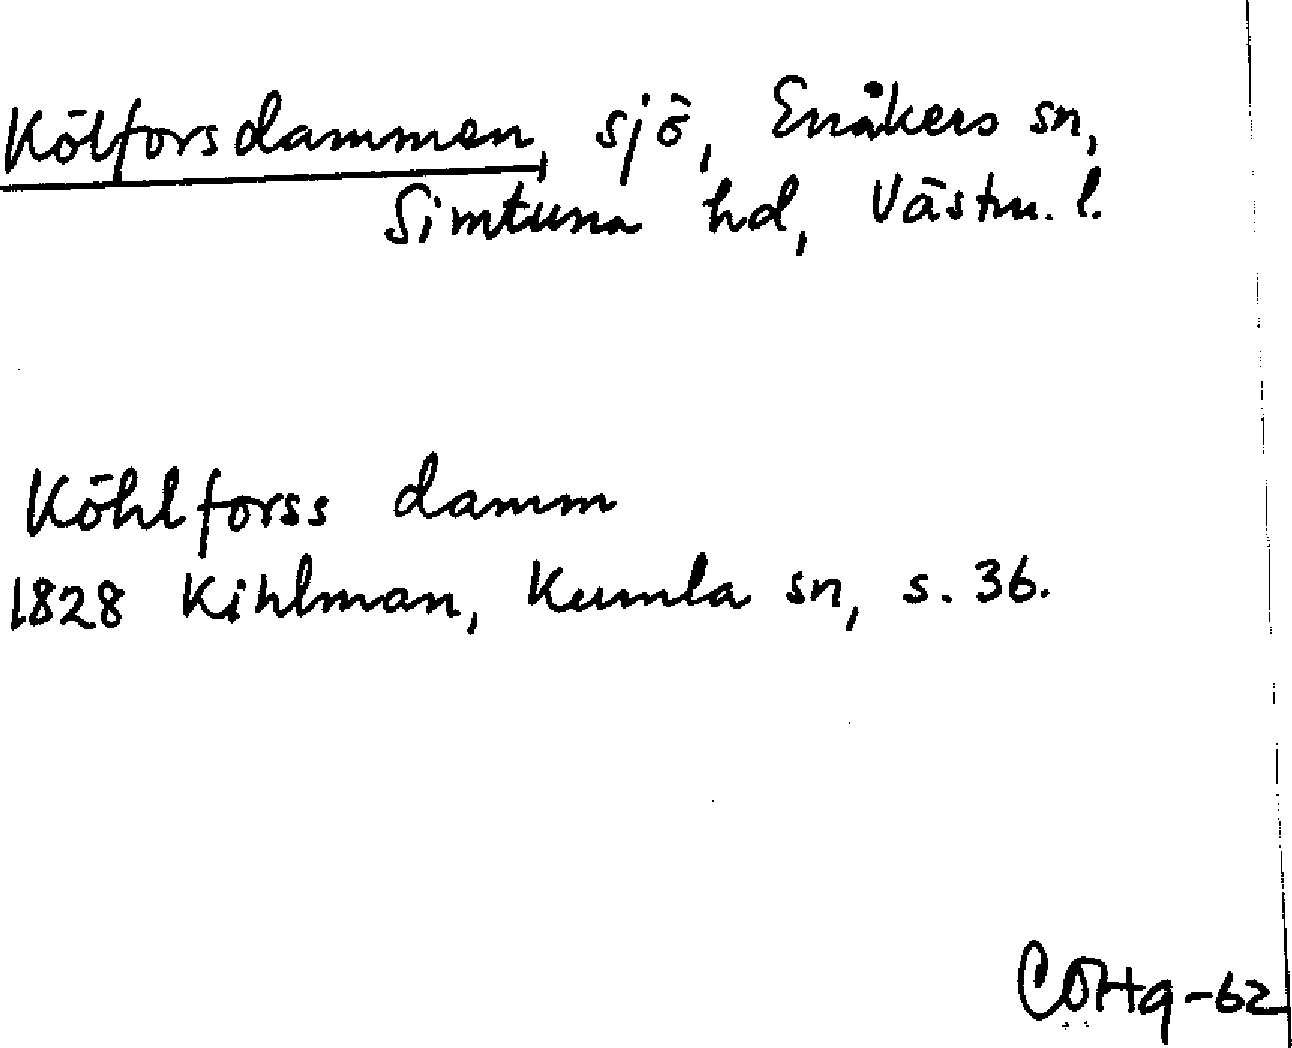 Kölforsdammen, sjö, Enåkers sn,
Simtuna hd, Västm. l.
Köhlforss damm
1828 Kihlman, Kumla sn, s. 36.
-62